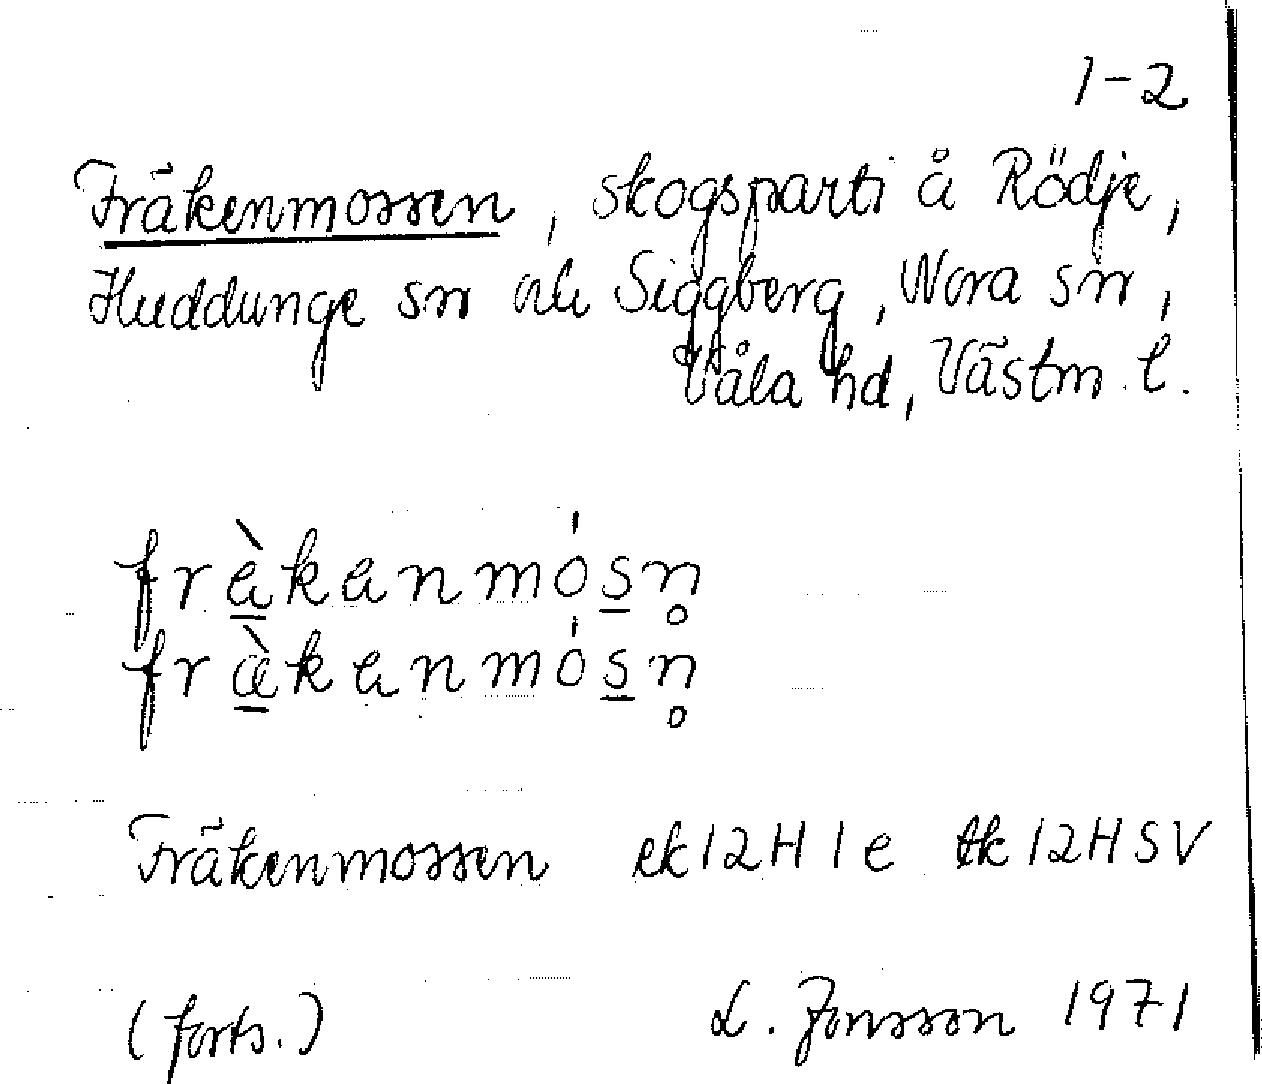 1-2
Fräkenmossen, skogsparti å Rödje,
Huddunge sn och Siggberg, Nora sn,
Våla hd, Västm. l.
fràkanmósn̥
fràkanmósn̥
Fräkenmossen ek 12H 1e tk 12H SV
(forts.) L. Jonsson 1971